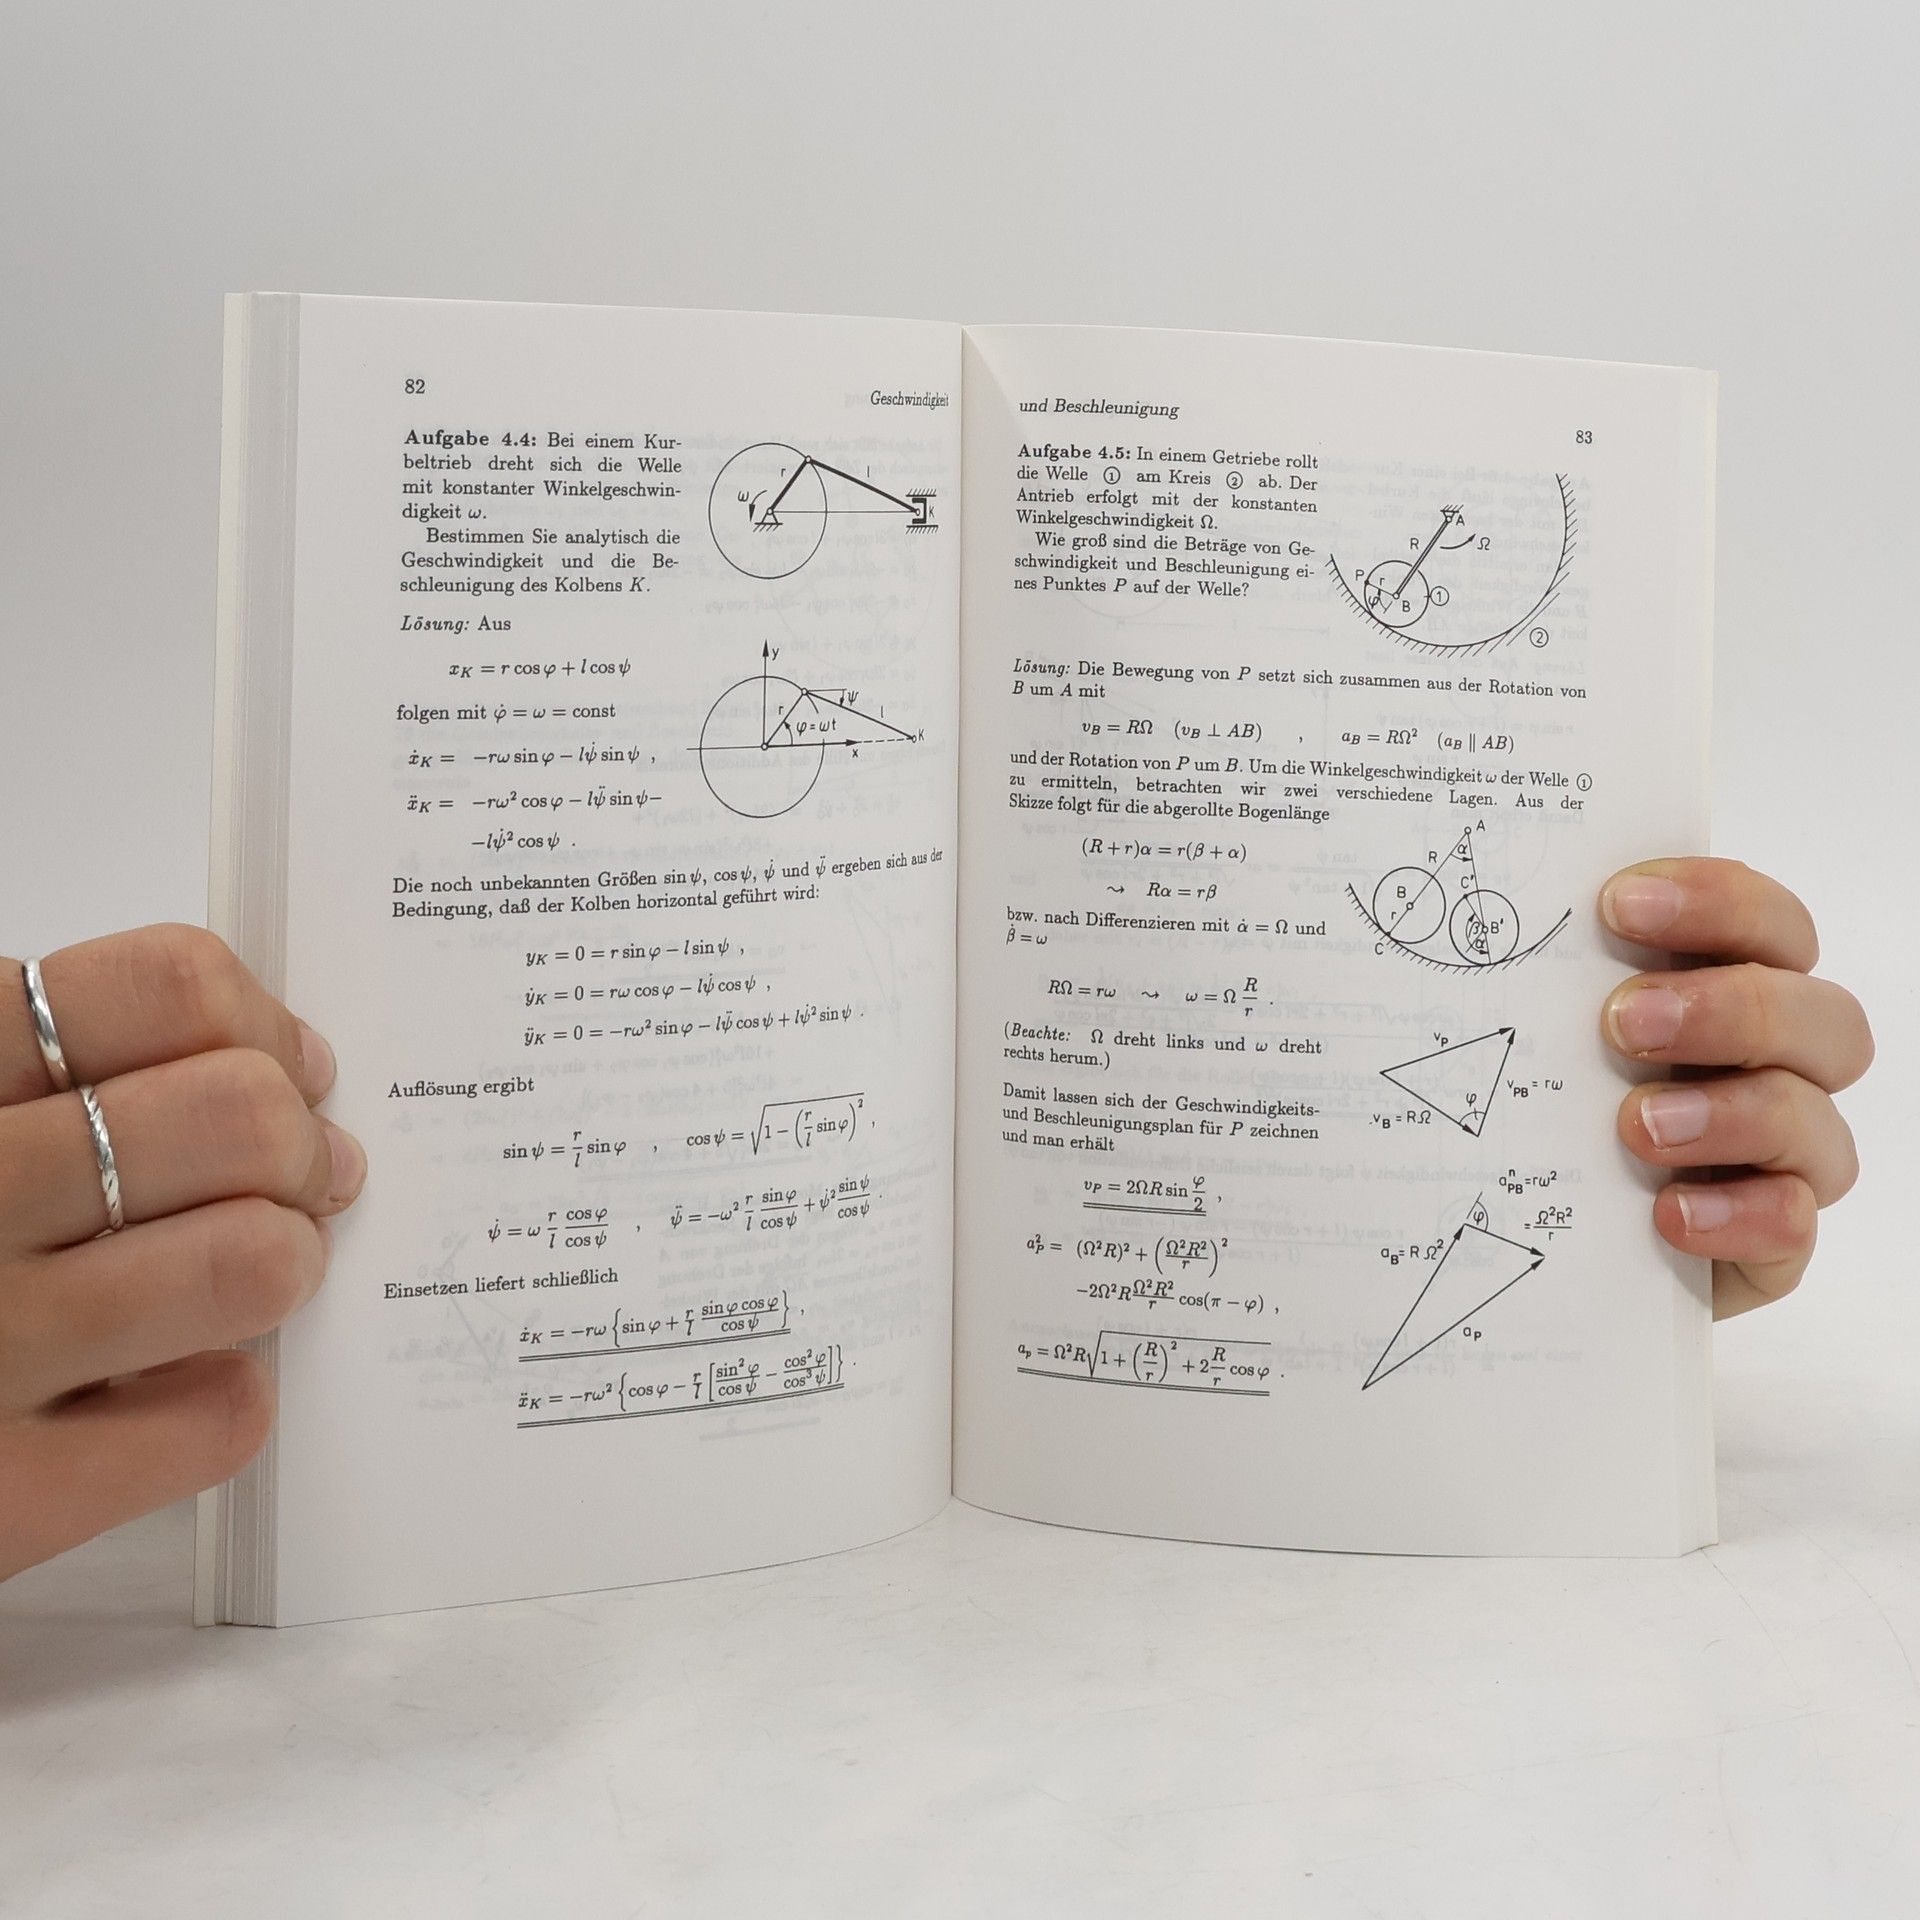 82
Geschwindigkeit
Aufgabe 4.4: Bei einem Kur-
beltrieb dreht sich die Welle
mit konstanter Winkelgeschwin-
digkeit ω.
Bestimmen Sie analytisch die
Geschwindigkeit und die Be-
schleunigung des Kolbens K.
r
l
ω
K
Lösung: Aus
x_K = r cos φ + l cos ψ
folgen mit φ̇ = ω = const
ẋ_K = −rω sin φ − lψ̇ sin ψ ,
ẍ_K = −rω² cos φ − lψ̈ sin ψ−
−lψ̇² cos ψ .
y
ψ
r
l
φ = ωt
K
x
Die noch unbekannten Größen sin ψ, cos ψ, ψ̇ und ψ̈ ergeben sich aus der
Bedingung, daß der Kolben horizontal geführt wird:
y_K = 0 = r sin φ − l sin ψ ,
ẏ_K = 0 = rω cos φ − lψ̇ cos ψ ,
ÿ_K = 0 = −rω² sin φ − lψ̈ cos ψ + lψ̇² sin ψ .
Auflösung ergibt
sin ψ = r/l sin φ , cos ψ = √(1 − (r/l sin φ)²) ,
ψ̇ = ω r/l cos φ/cos ψ , ψ̈ = −ω² r/l sin φ/cos ψ + ψ̇² sin ψ/cos ψ .
Einsetzen liefert schließlich
ẋ_K = −rω {sin φ + r/l sin φ cos φ/cos ψ} ,
ẍ_K = −rω² {cos φ − r/l [sin² φ/cos ψ − cos² φ/cos³ ψ]} .
und Beschleunigung
83
Aufgabe 4.5: In einem Getriebe rollt
die Welle ① am Kreis ② ab. Der
Antrieb erfolgt mit der konstanten
Winkelgeschwindigkeit Ω.
Wie groß sind die Beträge von Ge-
schwindigkeit und Beschleunigung ei-
nes Punktes P auf der Welle?
A
R
Ω
P
r
φ
B
①
②
Lösung: Die Bewegung von P setzt sich zusammen aus der Rotation von
B um A mit
v_B = RΩ (v_B ⊥ AB) , a_B = RΩ² (a_B ∥ AB)
und der Rotation von P um B. Um die Winkelgeschwindigkeit ω der Welle ①
zu ermitteln, betrachten wir zwei verschiedene Lagen. Aus der
Skizze folgt für die abgerollte Bogenlänge
(R + r)α = r(β + α)
⇝ Rα = rβ
bzw. nach Differenzieren mit α̇ = Ω und
β̇ = ω
RΩ = rω ⇝ ω = Ω R/r .
A
R
α
C'
B
r
β
B'
α
C
(Beachte: Ω dreht links und ω dreht
rechts herum.)
Damit lassen sich der Geschwindigkeits-
und Beschleunigungsplan für P zeichnen
und man erhält
v_P
v_PB = rω
φ
v_B = RΩ
v_P = 2ΩR sin φ/2 ,
a_P² = (Ω²R)² + (Ω²R²/r)²
−2Ω²R Ω²R²/r cos(π − φ) ,
a_p = Ω²R√(1 + (R/r)² + 2 R/r cos φ) .
a_PB^n = rω²
= Ω²R²/r
φ
a_B = RΩ²
a_P